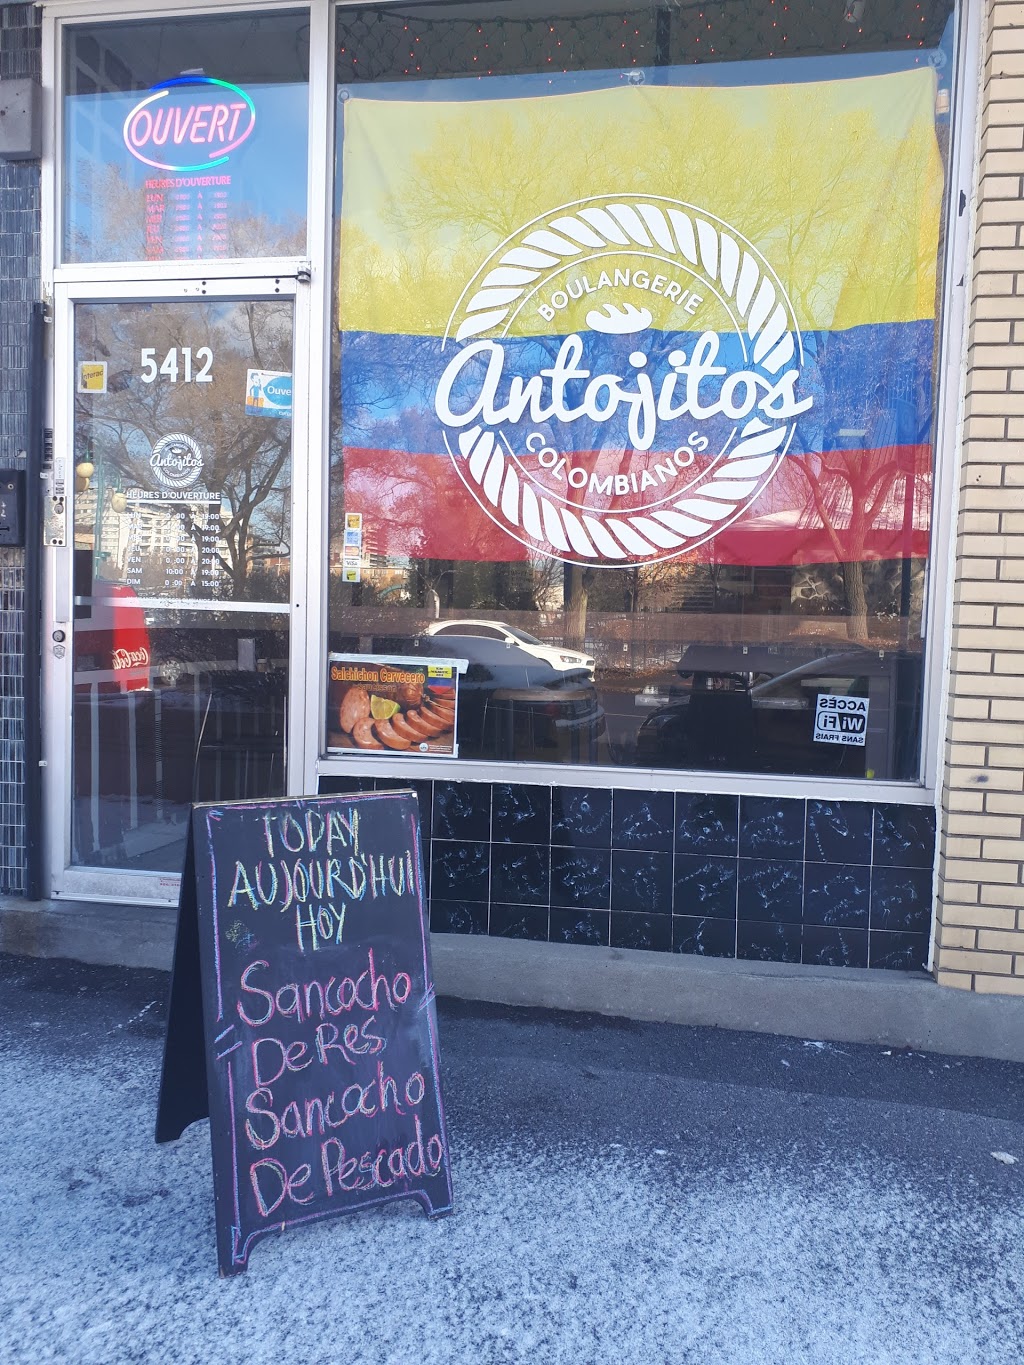 OUVERT
HEURES D'OUVERTURE
5412
Ouve
Antojitos
HEURES D'OUVERTURE
VEN
20:00
SAM 10:00 A 19:00
DIM A 15:00
BOULANGERIE
Antojitos
COLOMBIANOS
Coca-Cola
Salchichon Cervecero
ACCÈS
WiFi
SANS FRAIS
TODAY
AUJOURD'HUI
HOY
Sancocho
De Res
Sancocho
De Pescado